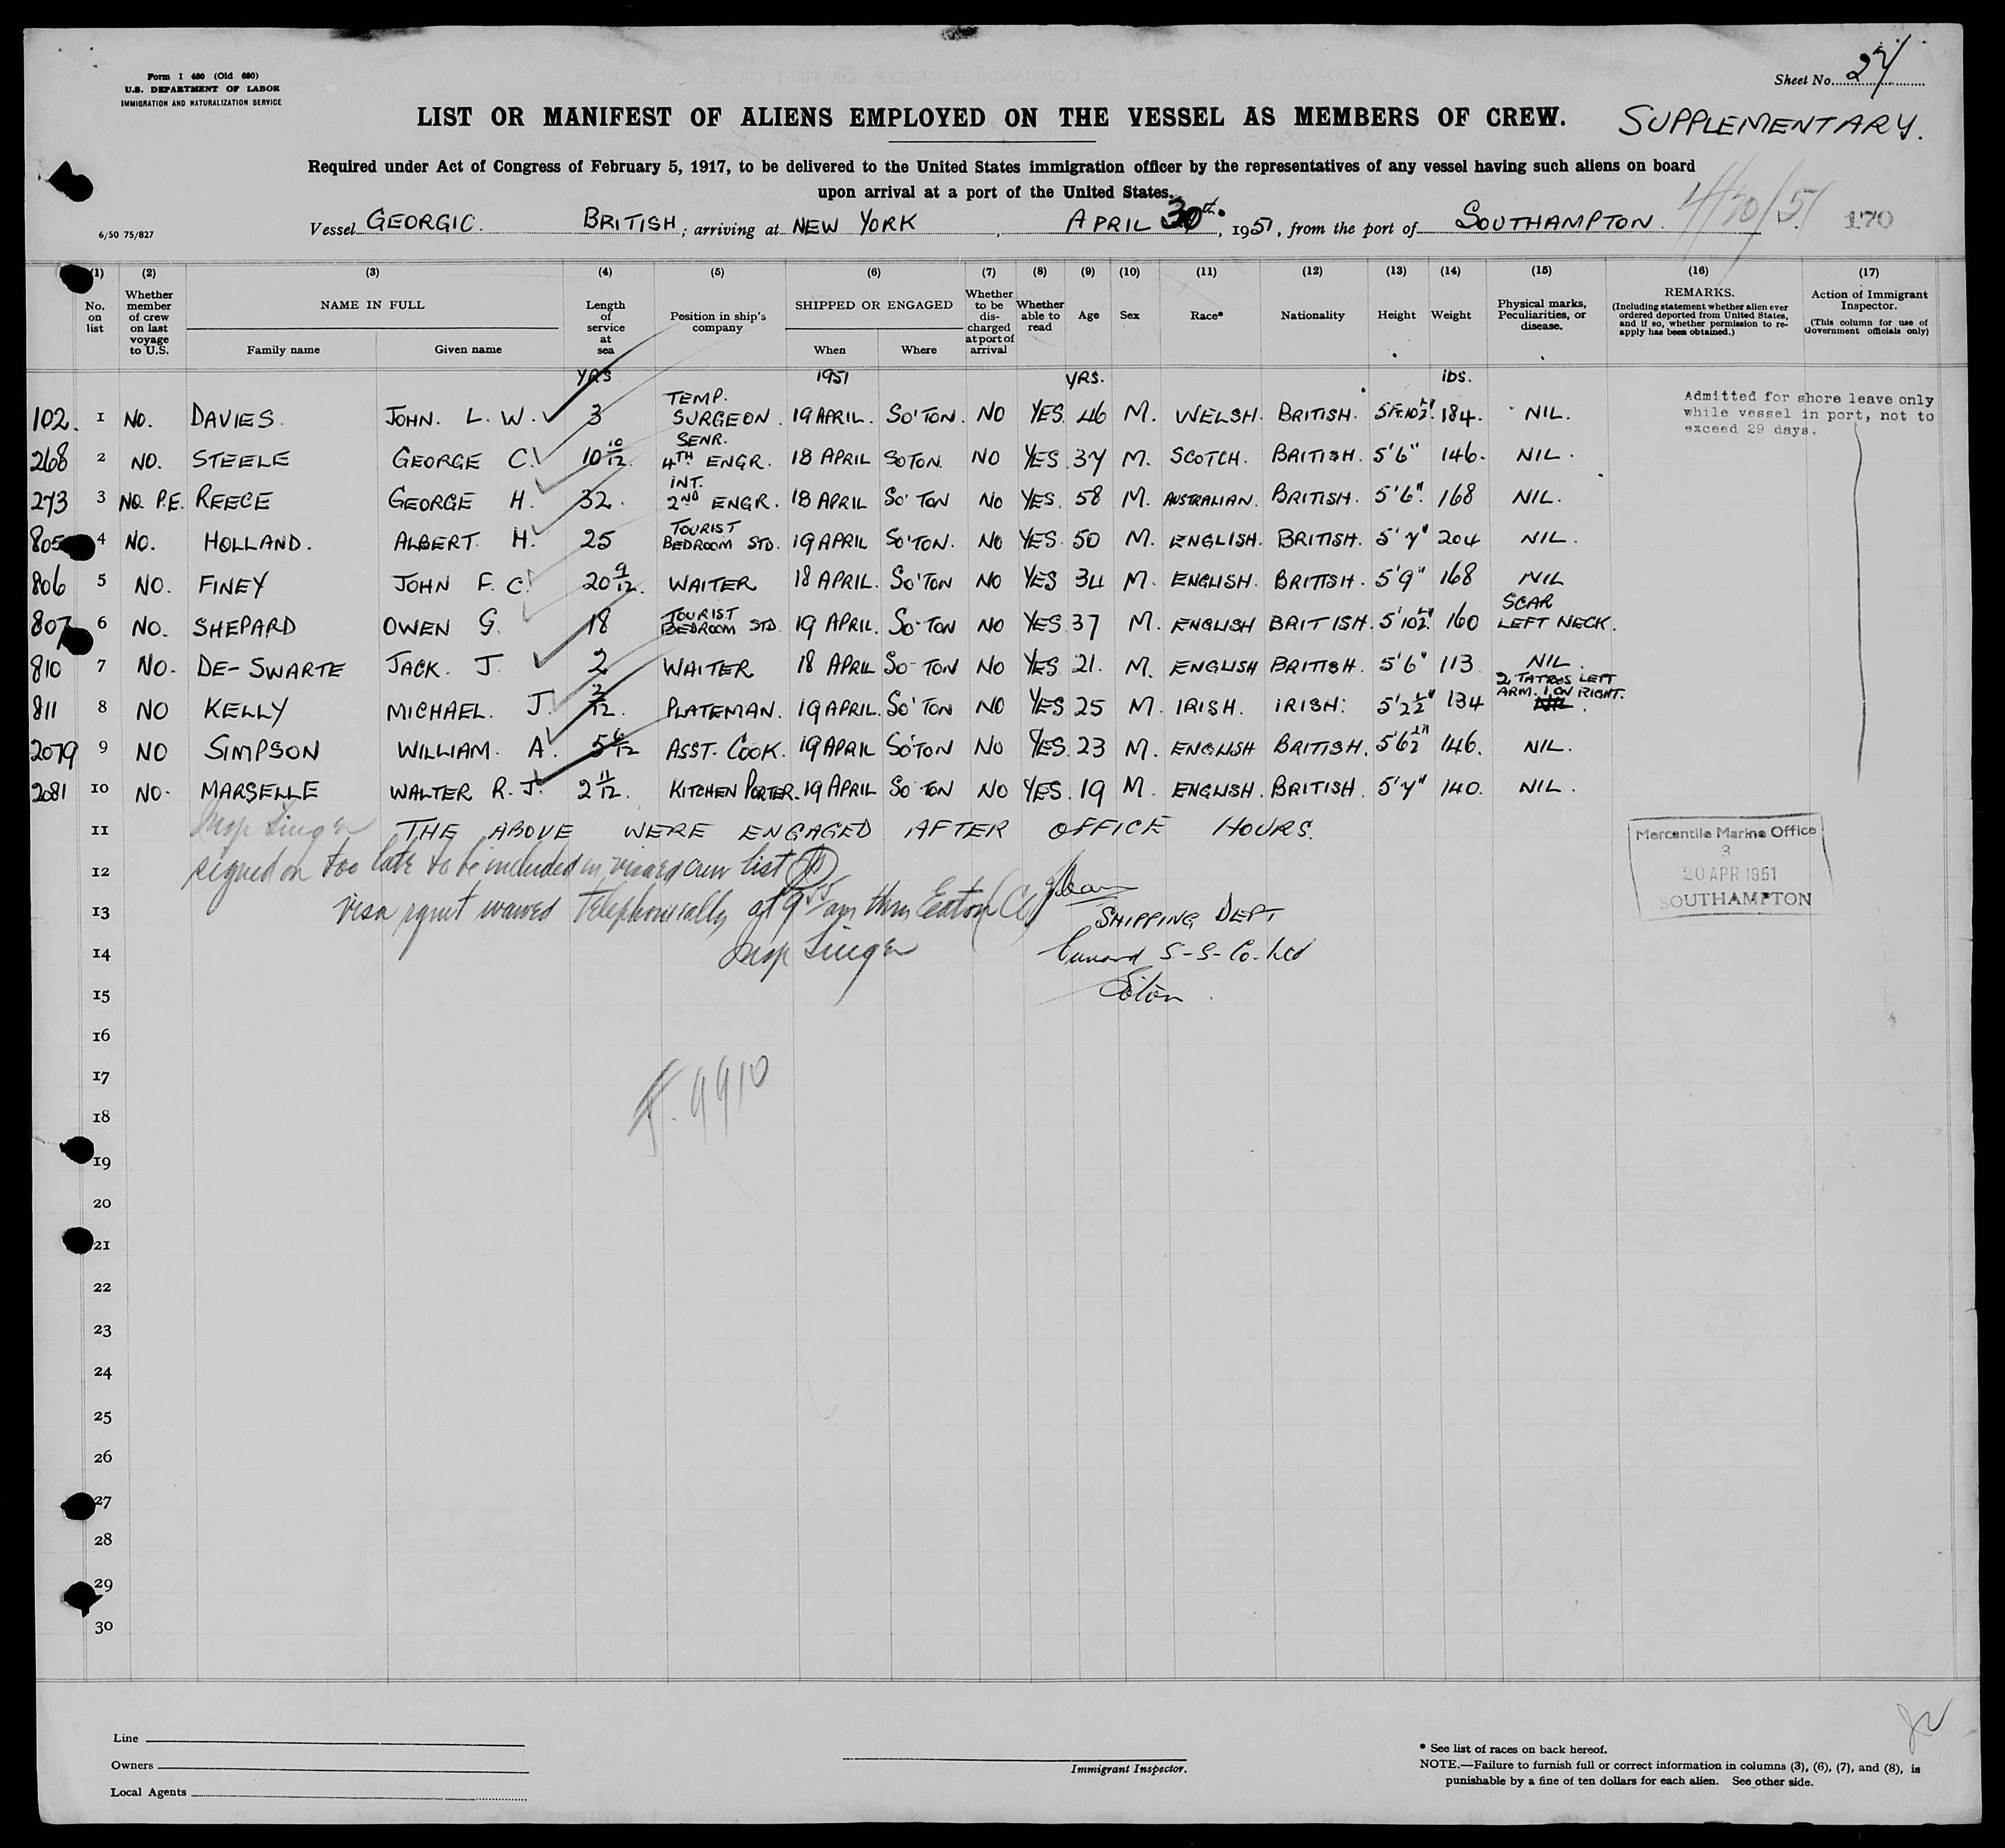 Form I 480 (Old 680)
U.S. DEPARTMENT OF LABOR
IMMIGRATION AND NATURALIZATION SERVICE
Sheet No. 27
LIST OR MANIFEST OF ALIENS EMPLOYED ON THE VESSEL AS MEMBERS OF CREW.
SUPPLEMENTARY.
Required under Act of Congress of February 5, 1917, to be delivered to the United States immigration officer by the representatives of any vessel having such aliens on board
upon arrival at a port of the United States.
6/50 75/827
Vessel GEORGIC. BRITISH; arriving at NEW YORK, APRIL 30th., 1951, from the port of SOUTHAMPTON. 4/30/51 170
(1) (2) (3) (4) (5) (6) (7) (8) (9) (10) (11) (12) (13) (14) (15) (16) (17)
No. on list
Whether member of crew on last voyage to U.S.
NAME IN FULL
Family name Given name
Length of service at sea
Position in ship's company
SHIPPED OR ENGAGED
When Where
Whether to be discharged at port of arrival
Whether able to read
Age
Sex
Race*
Nationality
Height
Weight
Physical marks, Peculiarities, or disease.
REMARKS.
(Including statement whether alien ever ordered deported from United States, and if so, whether permission to re-apply has been obtained.)
Action of Immigrant Inspector.
(This column for use of Government officials only)
YRS 1951 YRS. lbs.
102. 1 NO. DAVIES. JOHN. L. W. 3 TEMP. SURGEON. 19 APRIL. SO'TON. NO YES 46 M. WELSH. BRITISH. 5FT.10½". 184. NIL.
Admitted for shore leave only
while vessel in port, not to
exceed 29 days.
268 2 NO. STEELE GEORGE C. 10 10/12 SENR. 4TH ENGR. 18 APRIL SOTON. NO YES 37 M. SCOTCH. BRITISH. 5'6" 146. NIL.
273 3 NO. P.E. REECE GEORGE H. 32. INT. 2ND ENGR. 18 APRIL SO'TON NO YES. 58 M. AUSTRALIAN. BRITISH. 5'6". 168 NIL.
805 4 NO. HOLLAND. ALBERT H. 25 TOURIST BEDROOM STD. 19 APRIL SO'TON. NO YES 50 M. ENGLISH. BRITISH. 5'7" 204 NIL.
806 5 NO. FINEY JOHN F. C. 20 9/12. WAITER 18 APRIL. SO'TON NO YES 34 M. ENGLISH. BRITISH. 5'9" 168 NIL
807 6 NO. SHEPARD OWEN G. 18 TOURIST BEDROOM STD 19 APRIL. SO-TON NO YES 37 M. ENGLISH BRITISH. 5'10½". 160 SCAR LEFT NECK.
810 7 NO. DE-SWARTE JACK. J. 2 WAITER 18 APRIL SO-TON NO YES 21. M. ENGLISH BRITISH. 5'6" 113 NIL.
811 8 NO KELLY MICHAEL. J. 2/12. PLATEMAN. 19 APRIL. SO'TON NO YES 25 M. IRISH. IRISH. 5'2½" 134 2 TATOOS LEFT ARM. 1 ON RIGHT. NIL.
2079 9 NO SIMPSON WILLIAM. A. 5 6/12 ASST. COOK. 19 APRIL SO'TON NO YES. 23 M. ENGLISH BRITISH. 5'6½" 146. NIL.
2081 10 NO. MARSELLE WALTER R. J. 2 11/12. KITCHEN PORTER. 19 APRIL SO'TON NO YES. 19 M. ENGLISH. BRITISH. 5'7" 140. NIL.
11 Insp Singer THE ABOVE WERE ENGAGED AFTER OFFICE HOURS.
12 signed on too late to be included in visaed crew list
13 visa rqmt waived telephonically at 9 55 am thru Eaton
SHIPPING DEPT
14 Insp Singer Cunard S-S-Co. Ltd
15 Soton.
Mercantile Marine Office
3
20 APR 1951
SOUTHAMPTON
16
17
F. 9910
18
19
20
21
22
23
24
25
26
27
28
29
30
Line
Owners
Local Agents
Immigrant Inspector.
* See list of races on back hereof.
NOTE.—Failure to furnish full or correct information in columns (3), (6), (7), and (8), is
punishable by a fine of ten dollars for each alien. See other side.